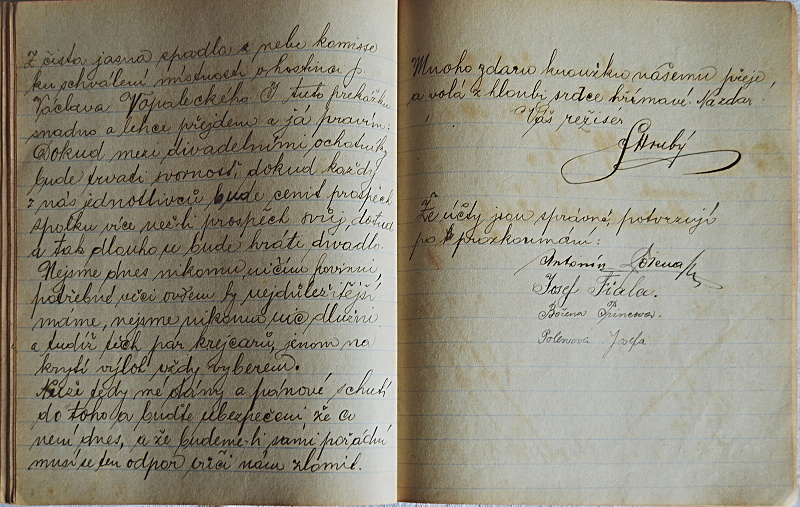 Z čista jasna spadla s nebe komisse
ku schválení místnosti v hostinci p.
Václava Vápaleckého I tuto překážku
snadno a lehce přejdem a já pravím:
Dokud mezi divadelními ochotníky
bude trvati svornost, dokud každý
z nás jednotlivců bude cenit prospěch
spolku více nežli prospěch svůj, dotud
a tak dlouho u bude hráti divadlo.
Nejsme dnes nikomu ničím povinni,
potřebné věci ovšem ty nejdůležitější
máme, nejsme nikomu nic dlužni
a tudíž těch pár krejcarů, jenom na
krytí výloh vždy vyberem.
Nuže tedy mé dámy a pánové s chutí
do toho a buďte ubezpečeni že co
není dnes, a že budeme-li sami pořádní
musí se ten odpor vůči nám zlomit.
Mnoho zdaru kroužku našemu přeje
a volá z hloubi srdce hřímavé Nazdar!
Váš režiser
Hrubý
Že účty jsou správné, potvrzují
po prozkoumání:
Antonín
Josef Fiala.
Božena Princova.
Josefa